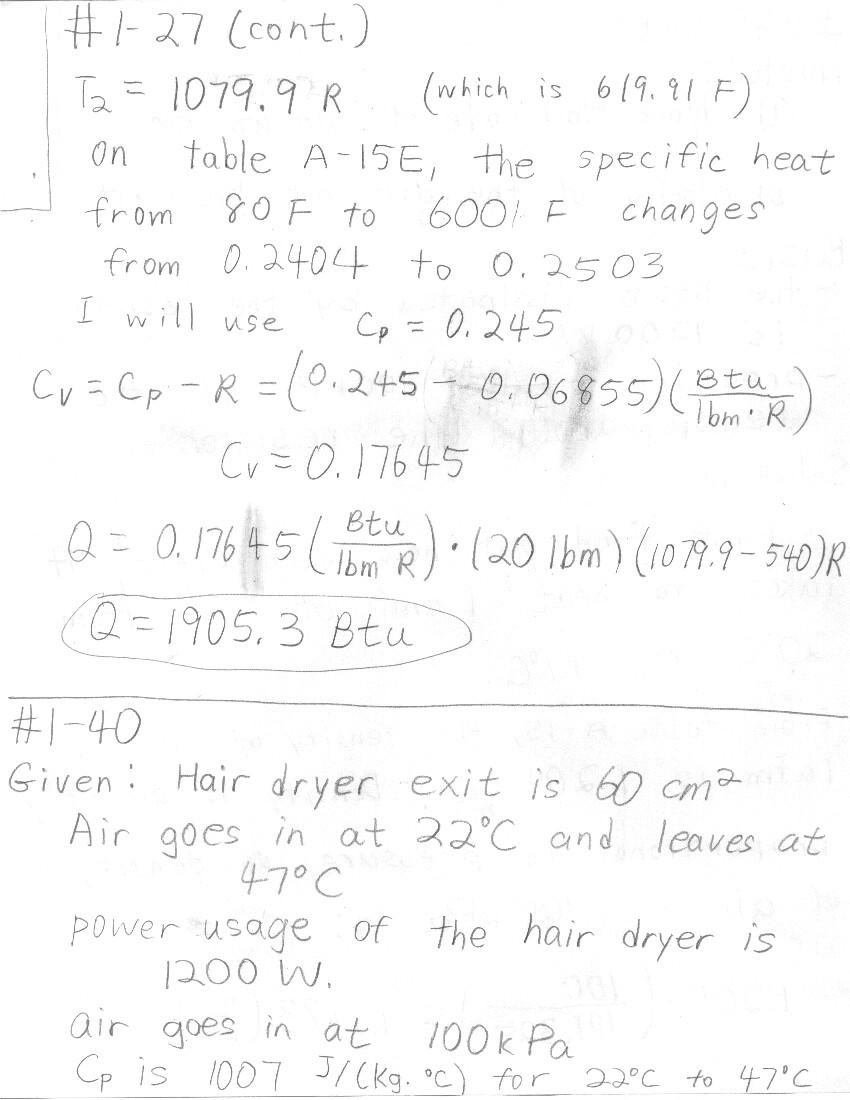 #1-27 (cont.)
T2 = 1079.9 R (which is 619.91 F)
on table A-15E, the specific heat
from 80 F to 600 F changes
from 0.2404 to 0.2503
I will use Cp = 0.245
Cv = Cp - R = (0.245 - 0.06855)(Btu/lbm·R)
Cv = 0.17645
Q = 0.17645 (Btu/lbm R)·(20 lbm)(1079.9-540)R
Q = 1905.3 Btu
#1-40
Given: Hair dryer exit is 60 cm²
Air goes in at 22°C and leaves at
47°C
power usage of the hair dryer is
1200 W.
air goes in at 100kPa
Cp is 1007 J/(kg.°C) for 22°C to 47°C